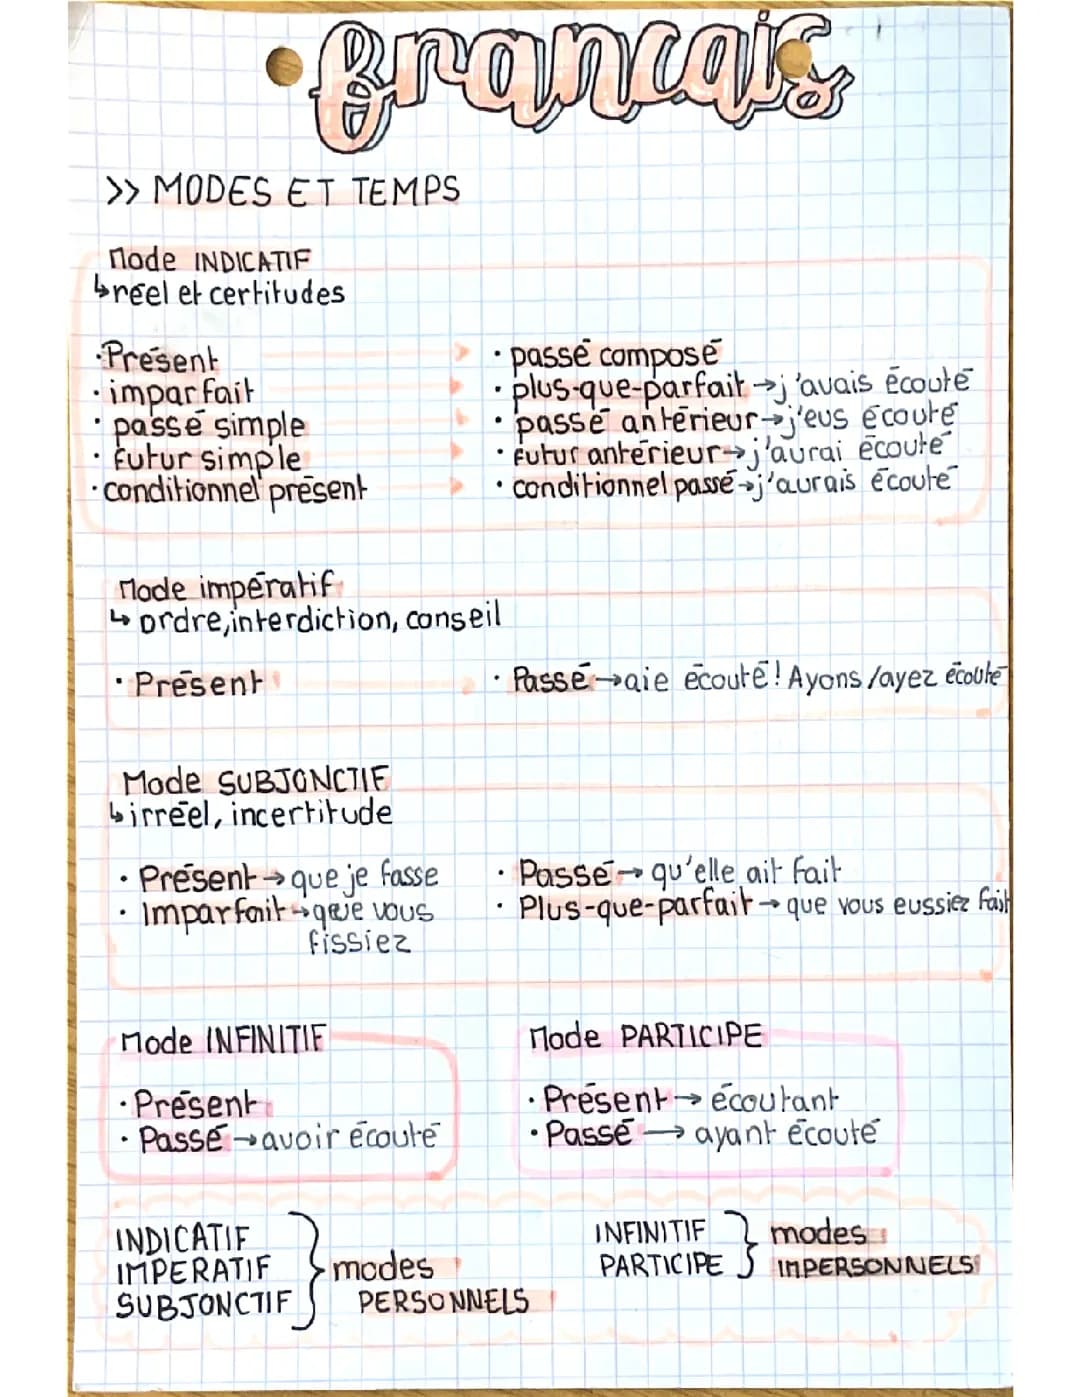 français
>> MODES ET TEMPS
Mode INDICATIF
↳ réel et certitudes
· Présent
· passé composé
· imparfait
· plus-que-parfait → j'avais écouté
· passé simple
· passé antérieur → j'eus écouté
· futur simple
· futur antérieur → j'aurai écouté
· conditionnel présent
· conditionnel passé → j'aurais écouté
Mode impératif
↳ ordre, interdiction, conseil
· Présent
· Passé → aie écouté! Ayons/ayez écouté
Mode SUBJONCTIF
↳ irréel, incertitude
· Présent → que je fasse
· Passé → qu'elle ait fait
· Imparfait → que vous
fissiez
· Plus-que-parfait → que vous eussiez fait
Mode INFINITIF
· Présent
· Passé → avoir écouté
Mode PARTICIPE
· Présent → écoutant
· Passé → ayant écouté
INDICATIF
IMPERATIF
SUBJONCTIF
modes
PERSONNELS
INFINITIF
PARTICIPE
modes
IMPERSONNELS